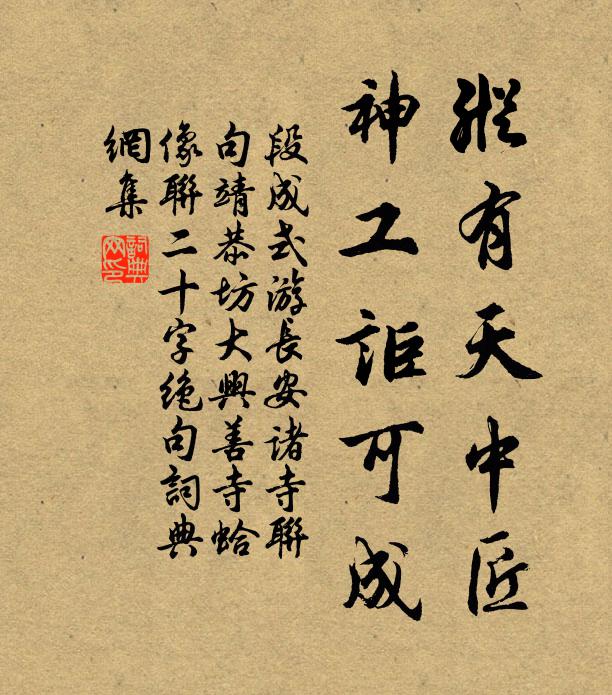 縱有天中匠
神工詎可成
段成式游長安諸寺聯
句靖恭坊大興善寺蛤
像聯二十字絶句詞典
網集
詞典
网印